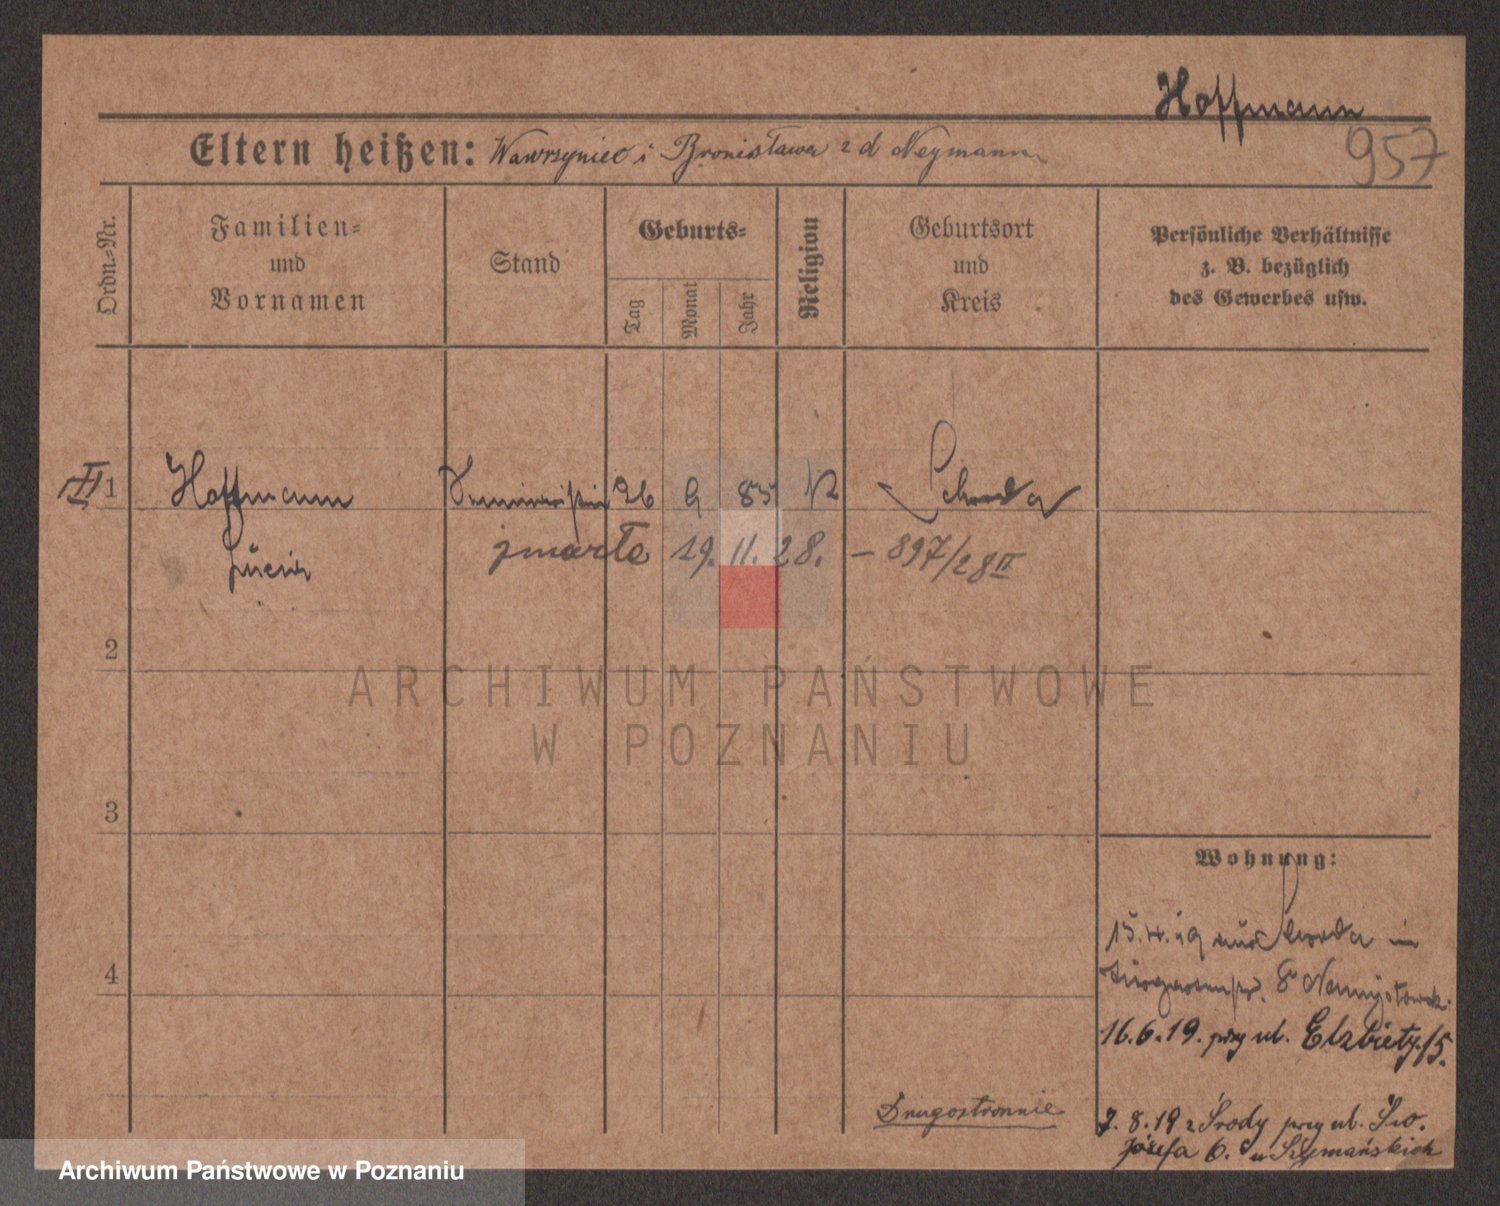 Hoffmann
957
Eltern heißen: Wawrzyniec i Bronisława z d Neymann
Ordn.-Nr.
Familien-
und
Vornamen
Stand
Geburts-
Tag
Monat
Jahr
Religion
Geburtsort
und
Kreis
Persönliche Verhältnisse
z. B. bezüglich
des Gewerbes usw.
II 1 Hoffmann 26 9 85 K Schroda
zmarła 19. 11. 28. — 897/28 II
2
ARCHIWUM PAŃSTWOWE
W POZNANIU
3
Wohnung:
15. 4. 19 aus Schroda in
8
4
16. 6. 19. przy ul. Elżbiety 15.
Drugostronnie
7. 8. 19 z Środy przy ul. Św.
Józefa 6. u Szymańskich
Archiwum Państwowe w Poznaniu